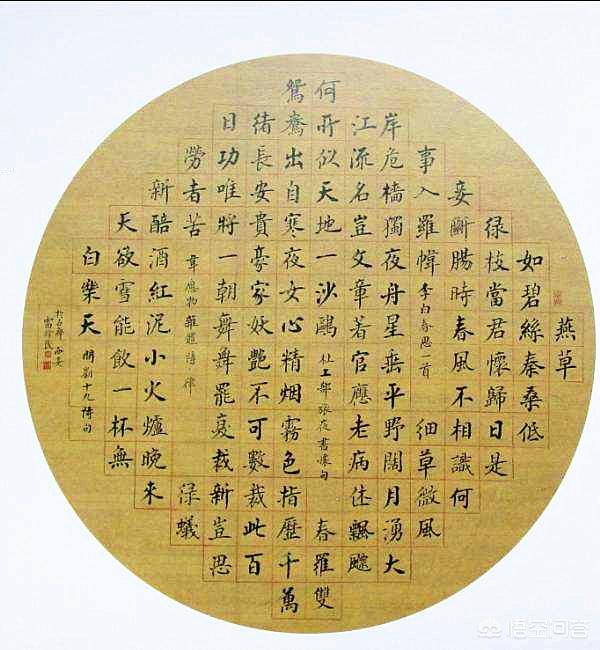 燕草
如碧絲秦桑低
绿枝當君懷歸日是
妾斷腸時春風不相識何
事入羅幃 李白春思一首 細草微風
岸危檣獨夜舟星垂平野闊月湧大
江流名豈文章著官應老病住飄飄
何所似天地一沙鷗 杜工部旅夜書懷句 春羅雙
鴛鴦出自寒夜女心精烟霧色指歷千萬
緒長安貴豪家妖艷不可數裁此百
日功唯將一朝舞舞罷復裁新豈思
勞者苦 韋應物雜體詩 渌蟻
新醅酒紅泥小火爐晚來
天欲雪能飲一杯無
白樂天 問劉十九詩句
悟空问答